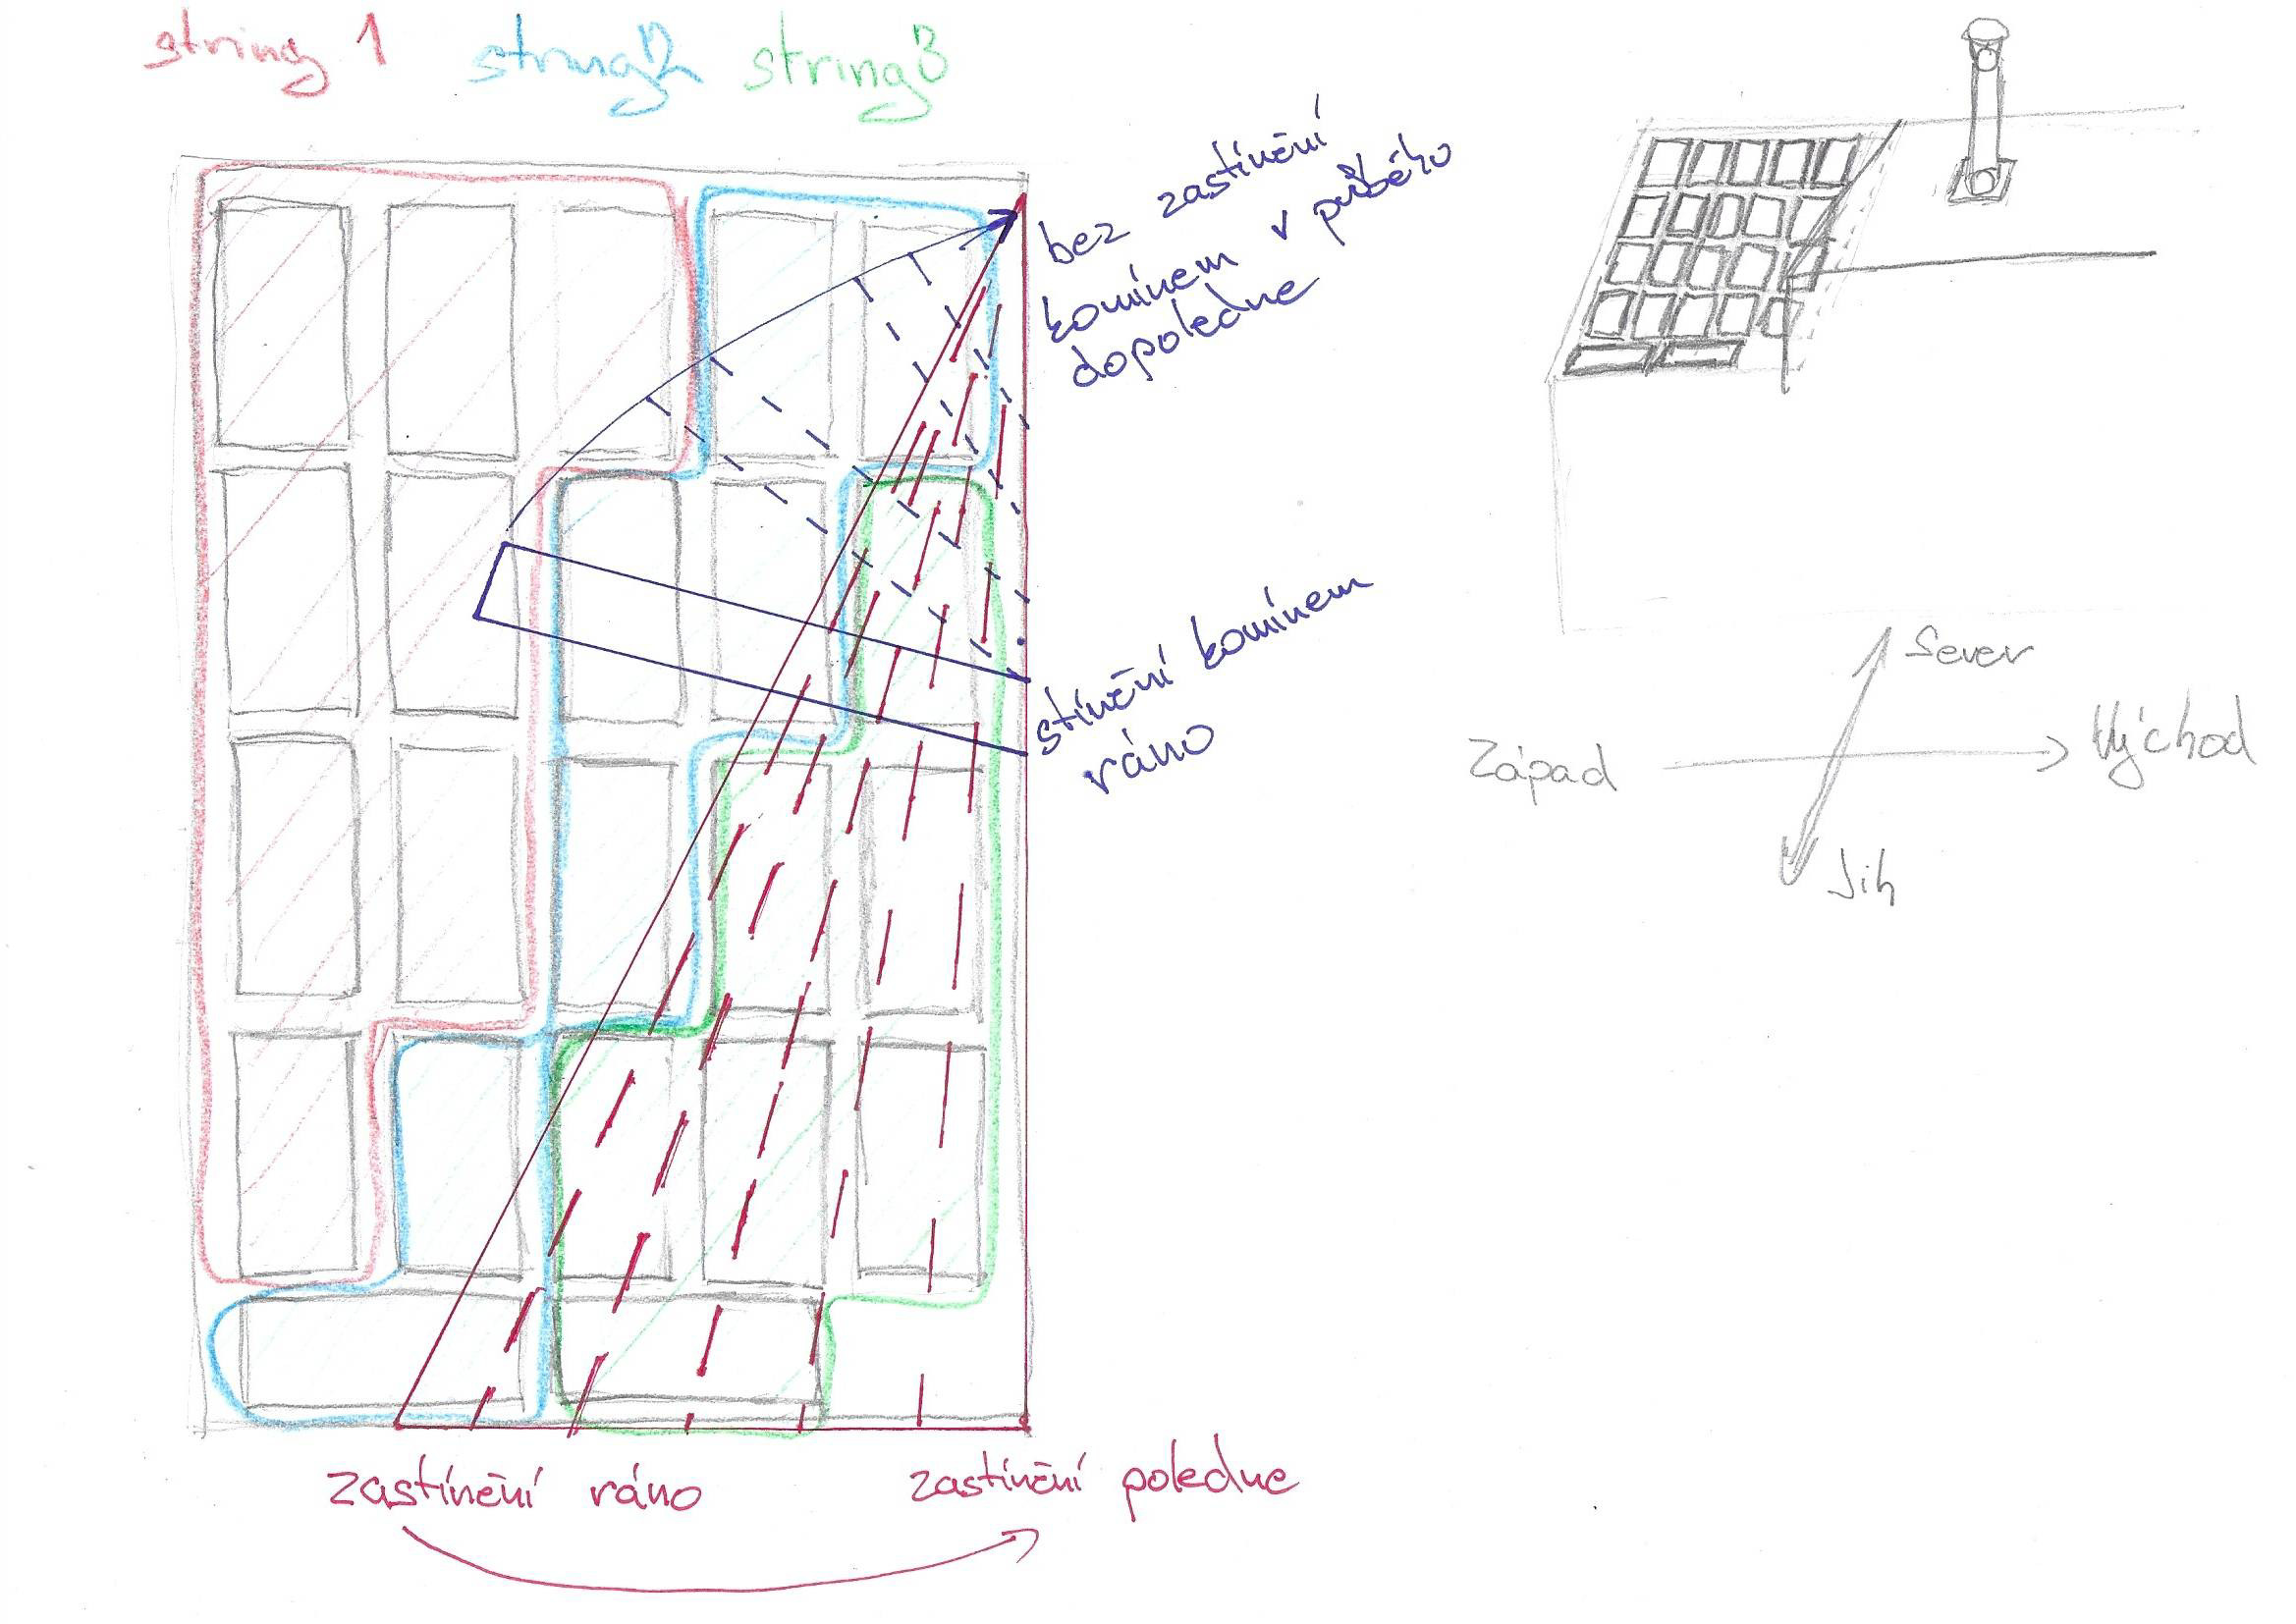 string 1 string 2 string 3
bez zastínění
komínem v průběhu
dopoledne
stínění komínem
ráno
Sever
Západ
Východ
Jih
zastínění ráno
zastínění poledne